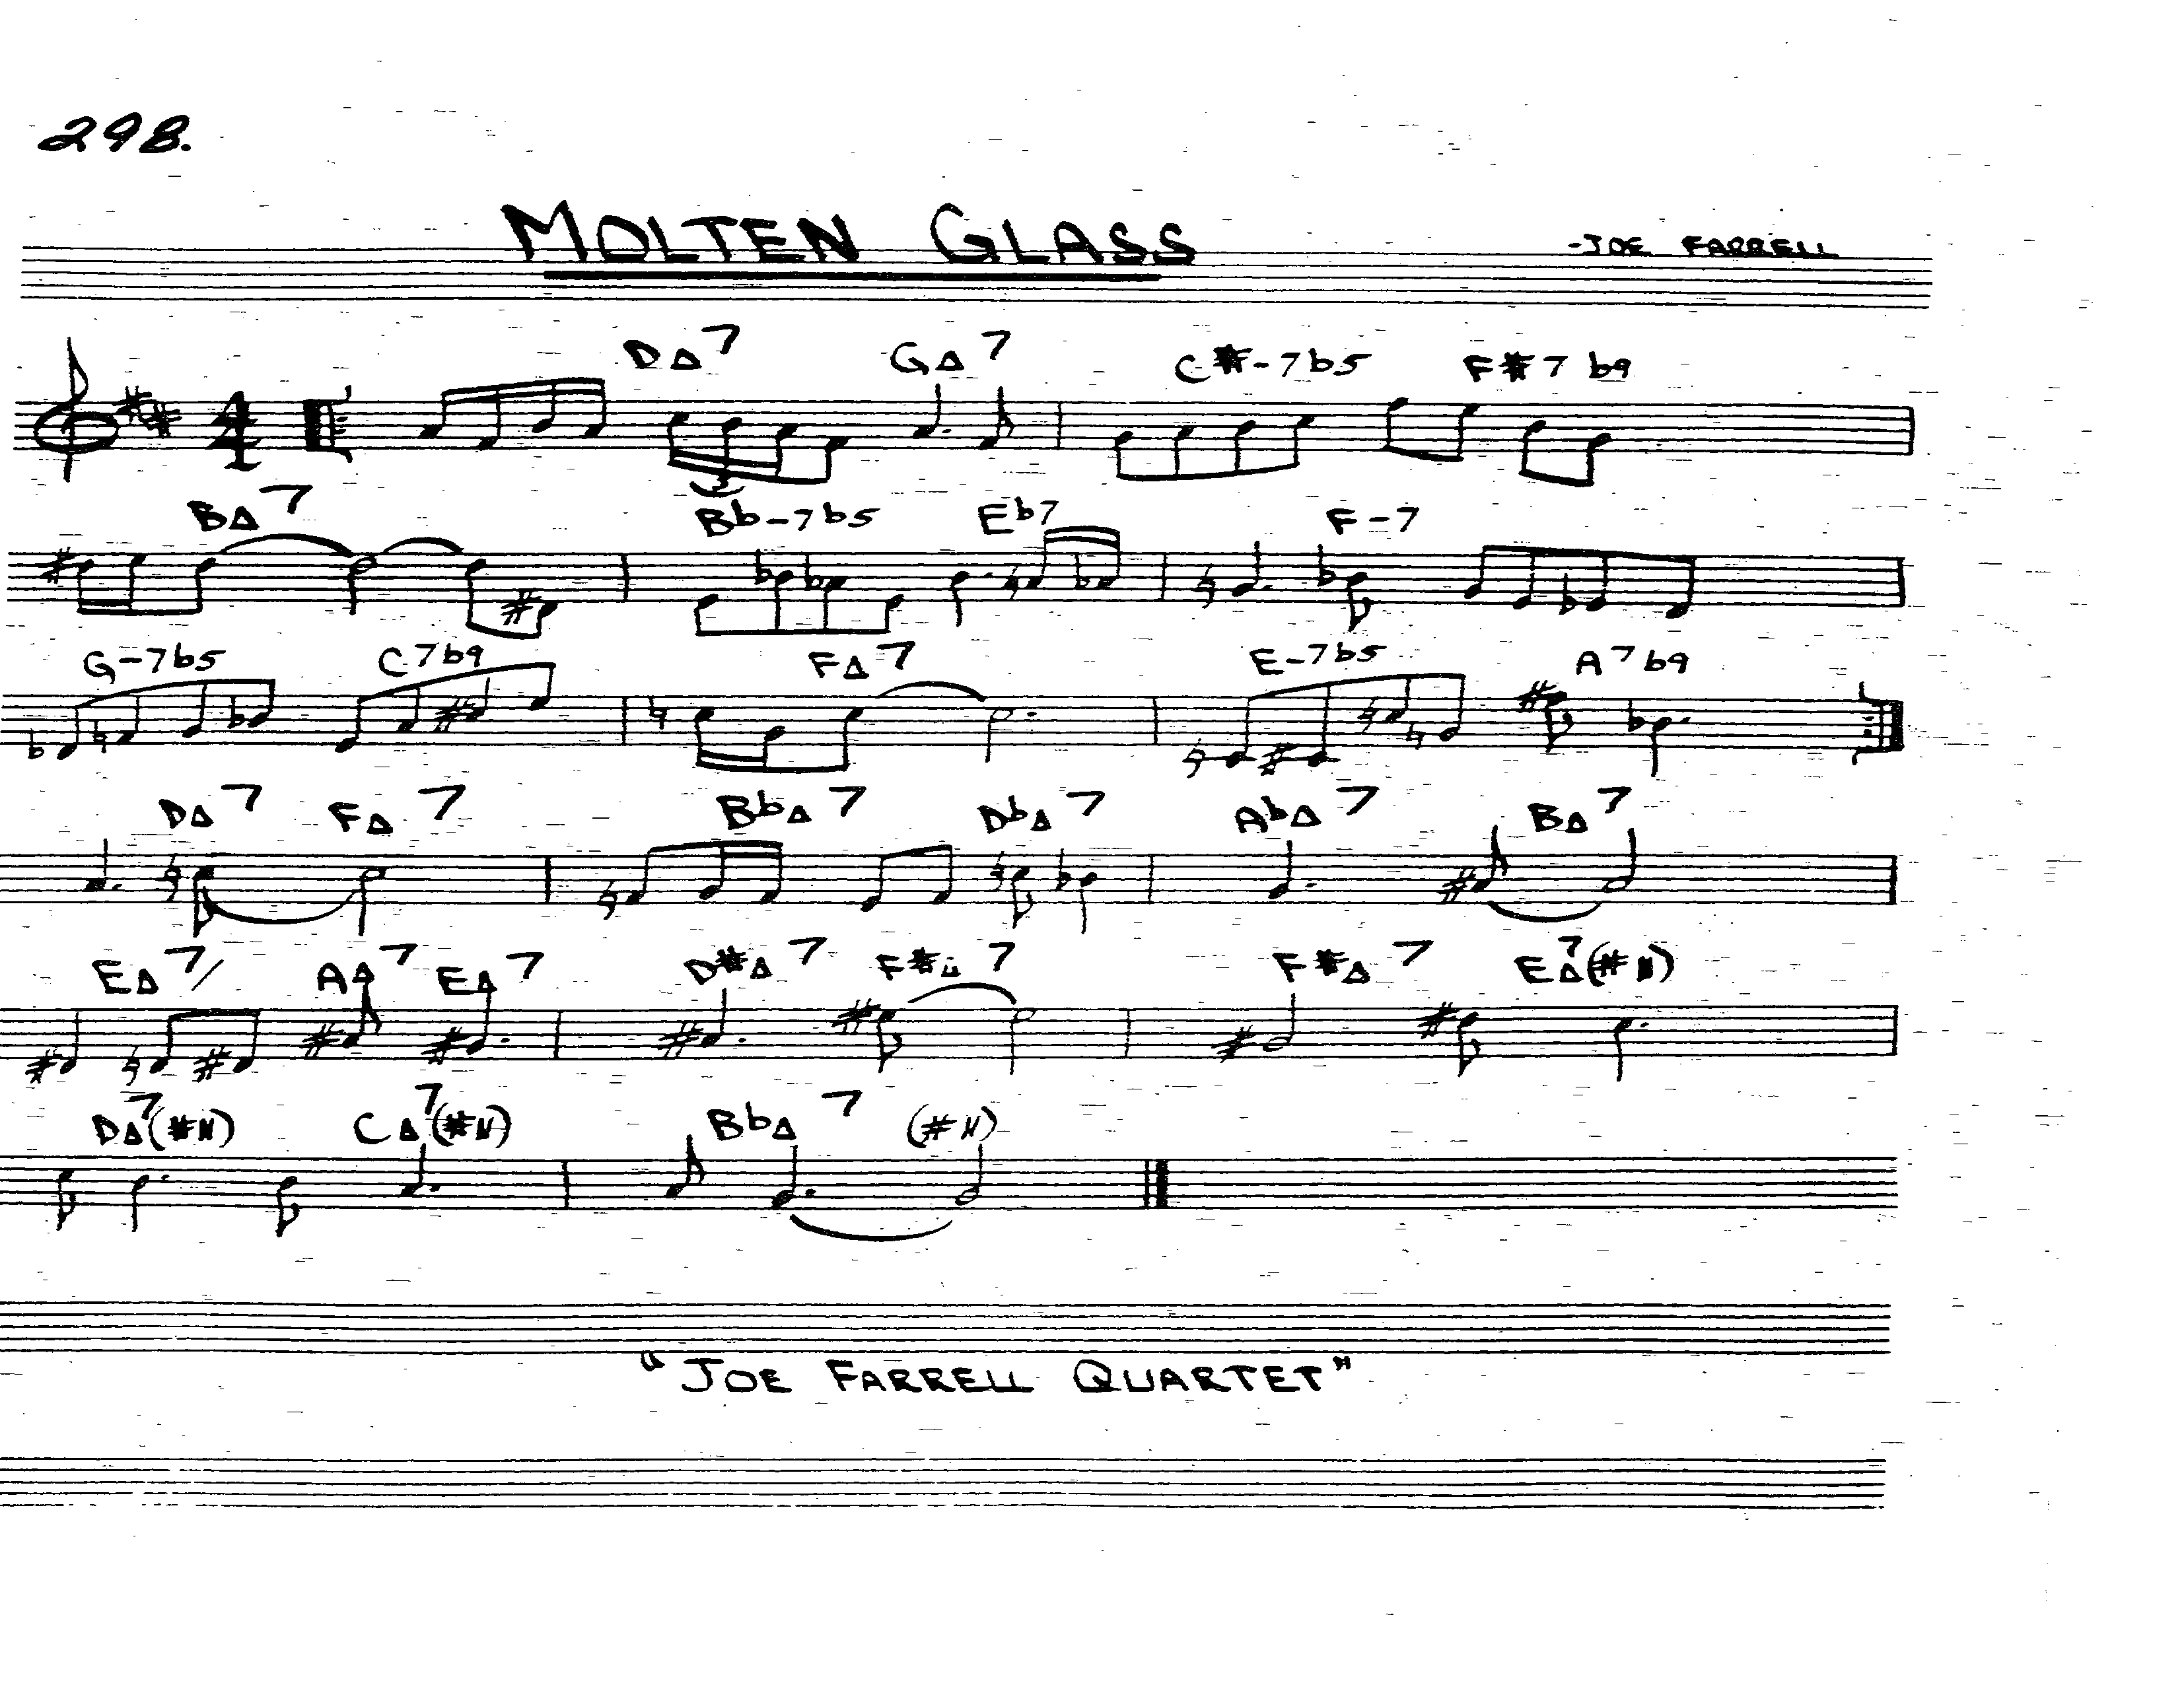 298.
MOLTEN GLASS
-JOE FARRELL
D△7 G△7 C#-7b5 F#7b9
4
4
3
B△7 Bb-7b5 Eb7 F-7
G-7b5 C7b9 F△7 E-7b5 A7b9
D△7 F△7 Bb△7 Db△7 Ab△7 B△7
E△7/ A△7 E△7 D#△7 F#△7 F#△7 E△7(#11)
D△7(#11) C△7(#11) Bb△7 (#11)
"JOE FARRELL QUARTET"